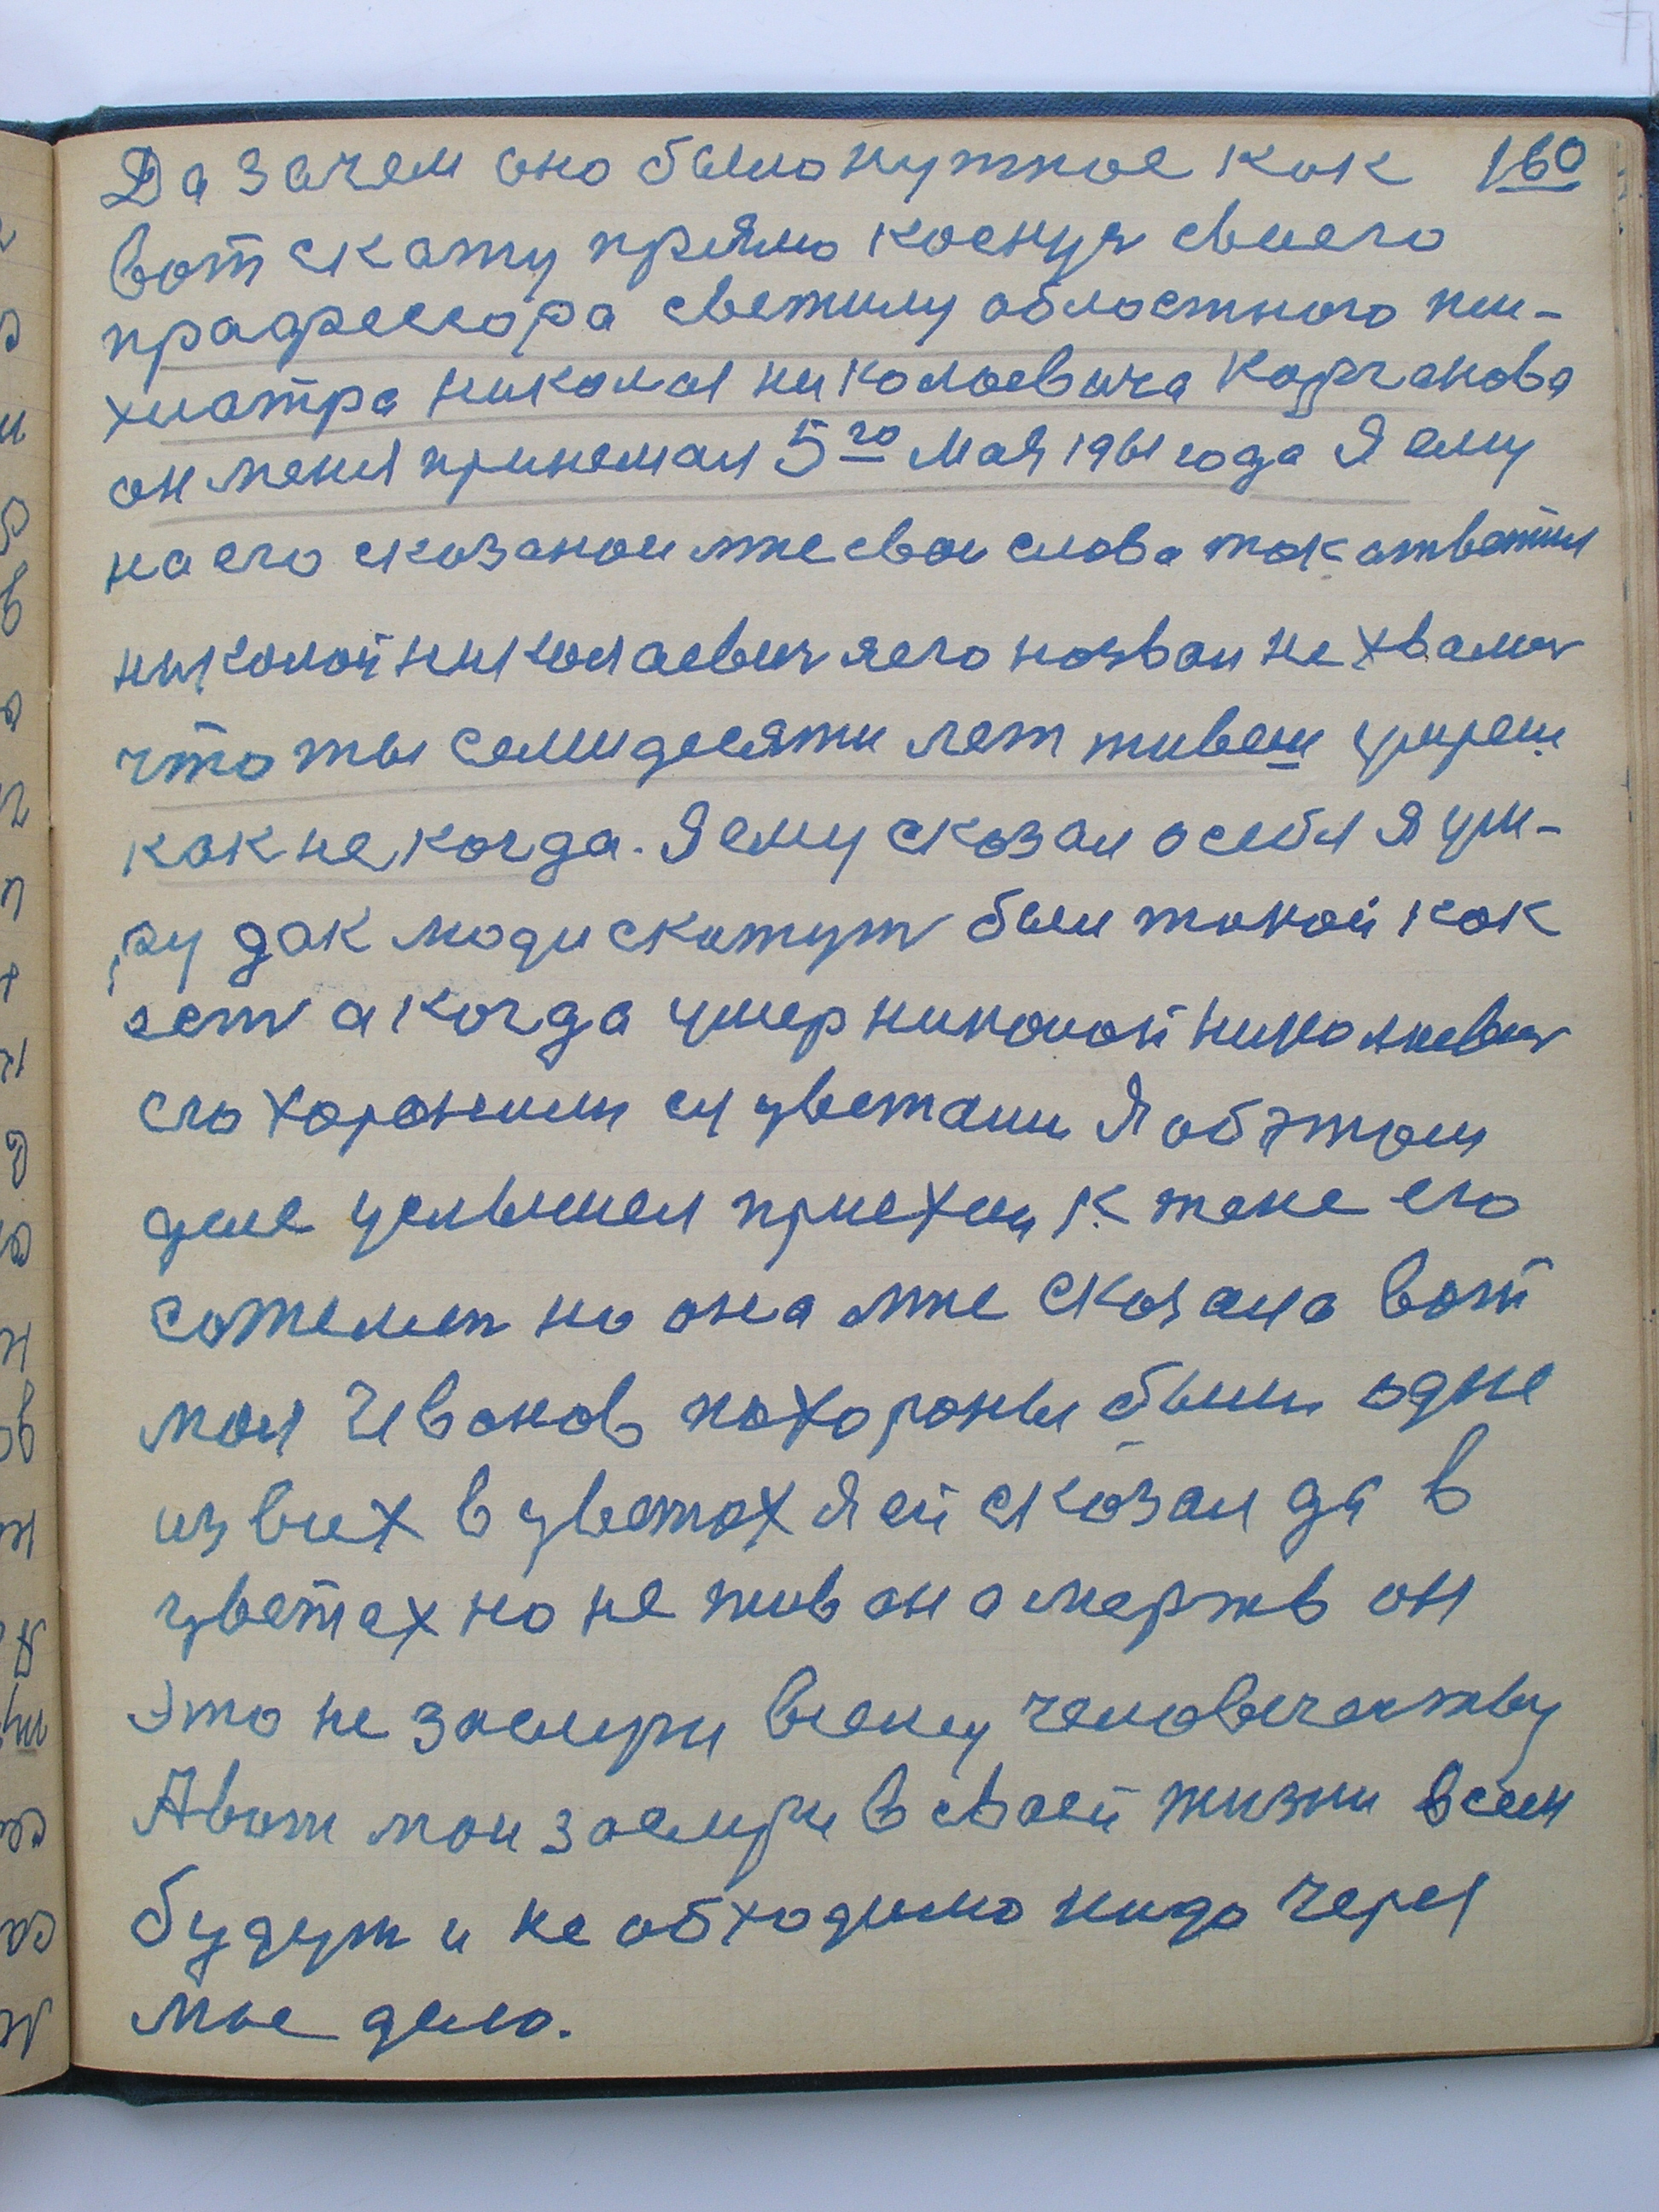 Да зачем оно было нужное как 160
вот скажу прямо коснуся своего
прафрессора светилу областного пси-
хиатра николая николоевича Корганова
он меня принемал 5го Мая 1961 года Я ему
на его сказаной мне свои слова так атветил
николай николаевич я его назвал не хвались
что ты семидесяти лет живеш умреш
как не когда. Я ему сказал о себя Я ум-
ру дак люди скажут был такой как
есть а когда умер николай николаевич
его хоронили су цветами Я об этом
деле услышел приехал к жене его
сожелел но она мне сказала вот
мол Иванов похороны были одне
из всех в цветах Я ей сказал да в
цветах но не жив он а мертв он
это не заслуги всему человечеству
А вот мои заслуги в своей жизни всем
будут и не обходимо надо через
мое дело.